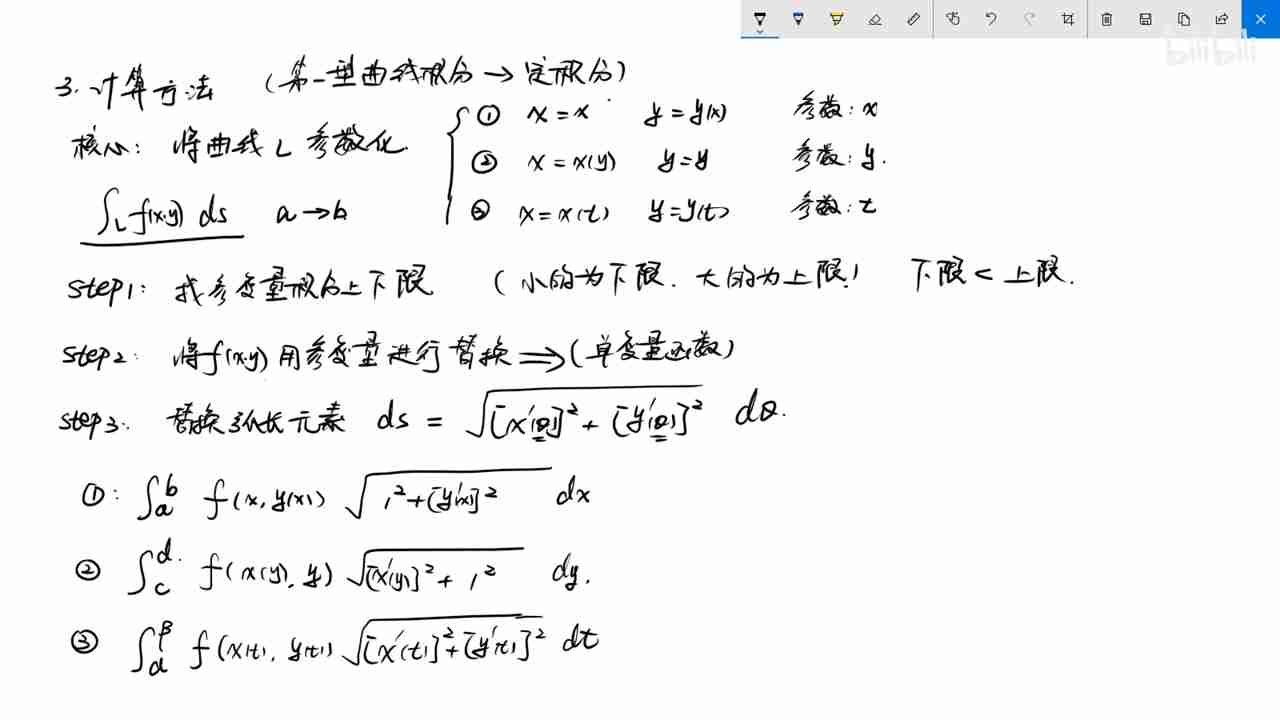 bilibili
3. 计算方法 (第一型曲线积分 → 定积分)
核心: 将曲线 L 参数化.
① x = x y = y(x) 参数: x
② x = x(y) y = y 参数: y.
③ x = x(t) y = y(t) 参数: t
∫_L f(x,y) ds a → b
step1: 找参变量积分上下限 (小的为下限. 大的为上限!) 下限 < 上限.
step2: 将 f(x,y) 用参变量进行替换 ⟹ (单变量函数)
step3: 替换弧长元素 ds = √([x'(θ)]² + [y'(θ)]²) dθ.
①: ∫_a^b f(x, y(x)) √(1² + [y'(x)]²) dx
② ∫_c^d f(x(y), y) √([x'(y)]² + 1²) dy.
③ ∫_α^β f(x(t), y(t)) √([x'(t)]² + [y'(t)]²) dt